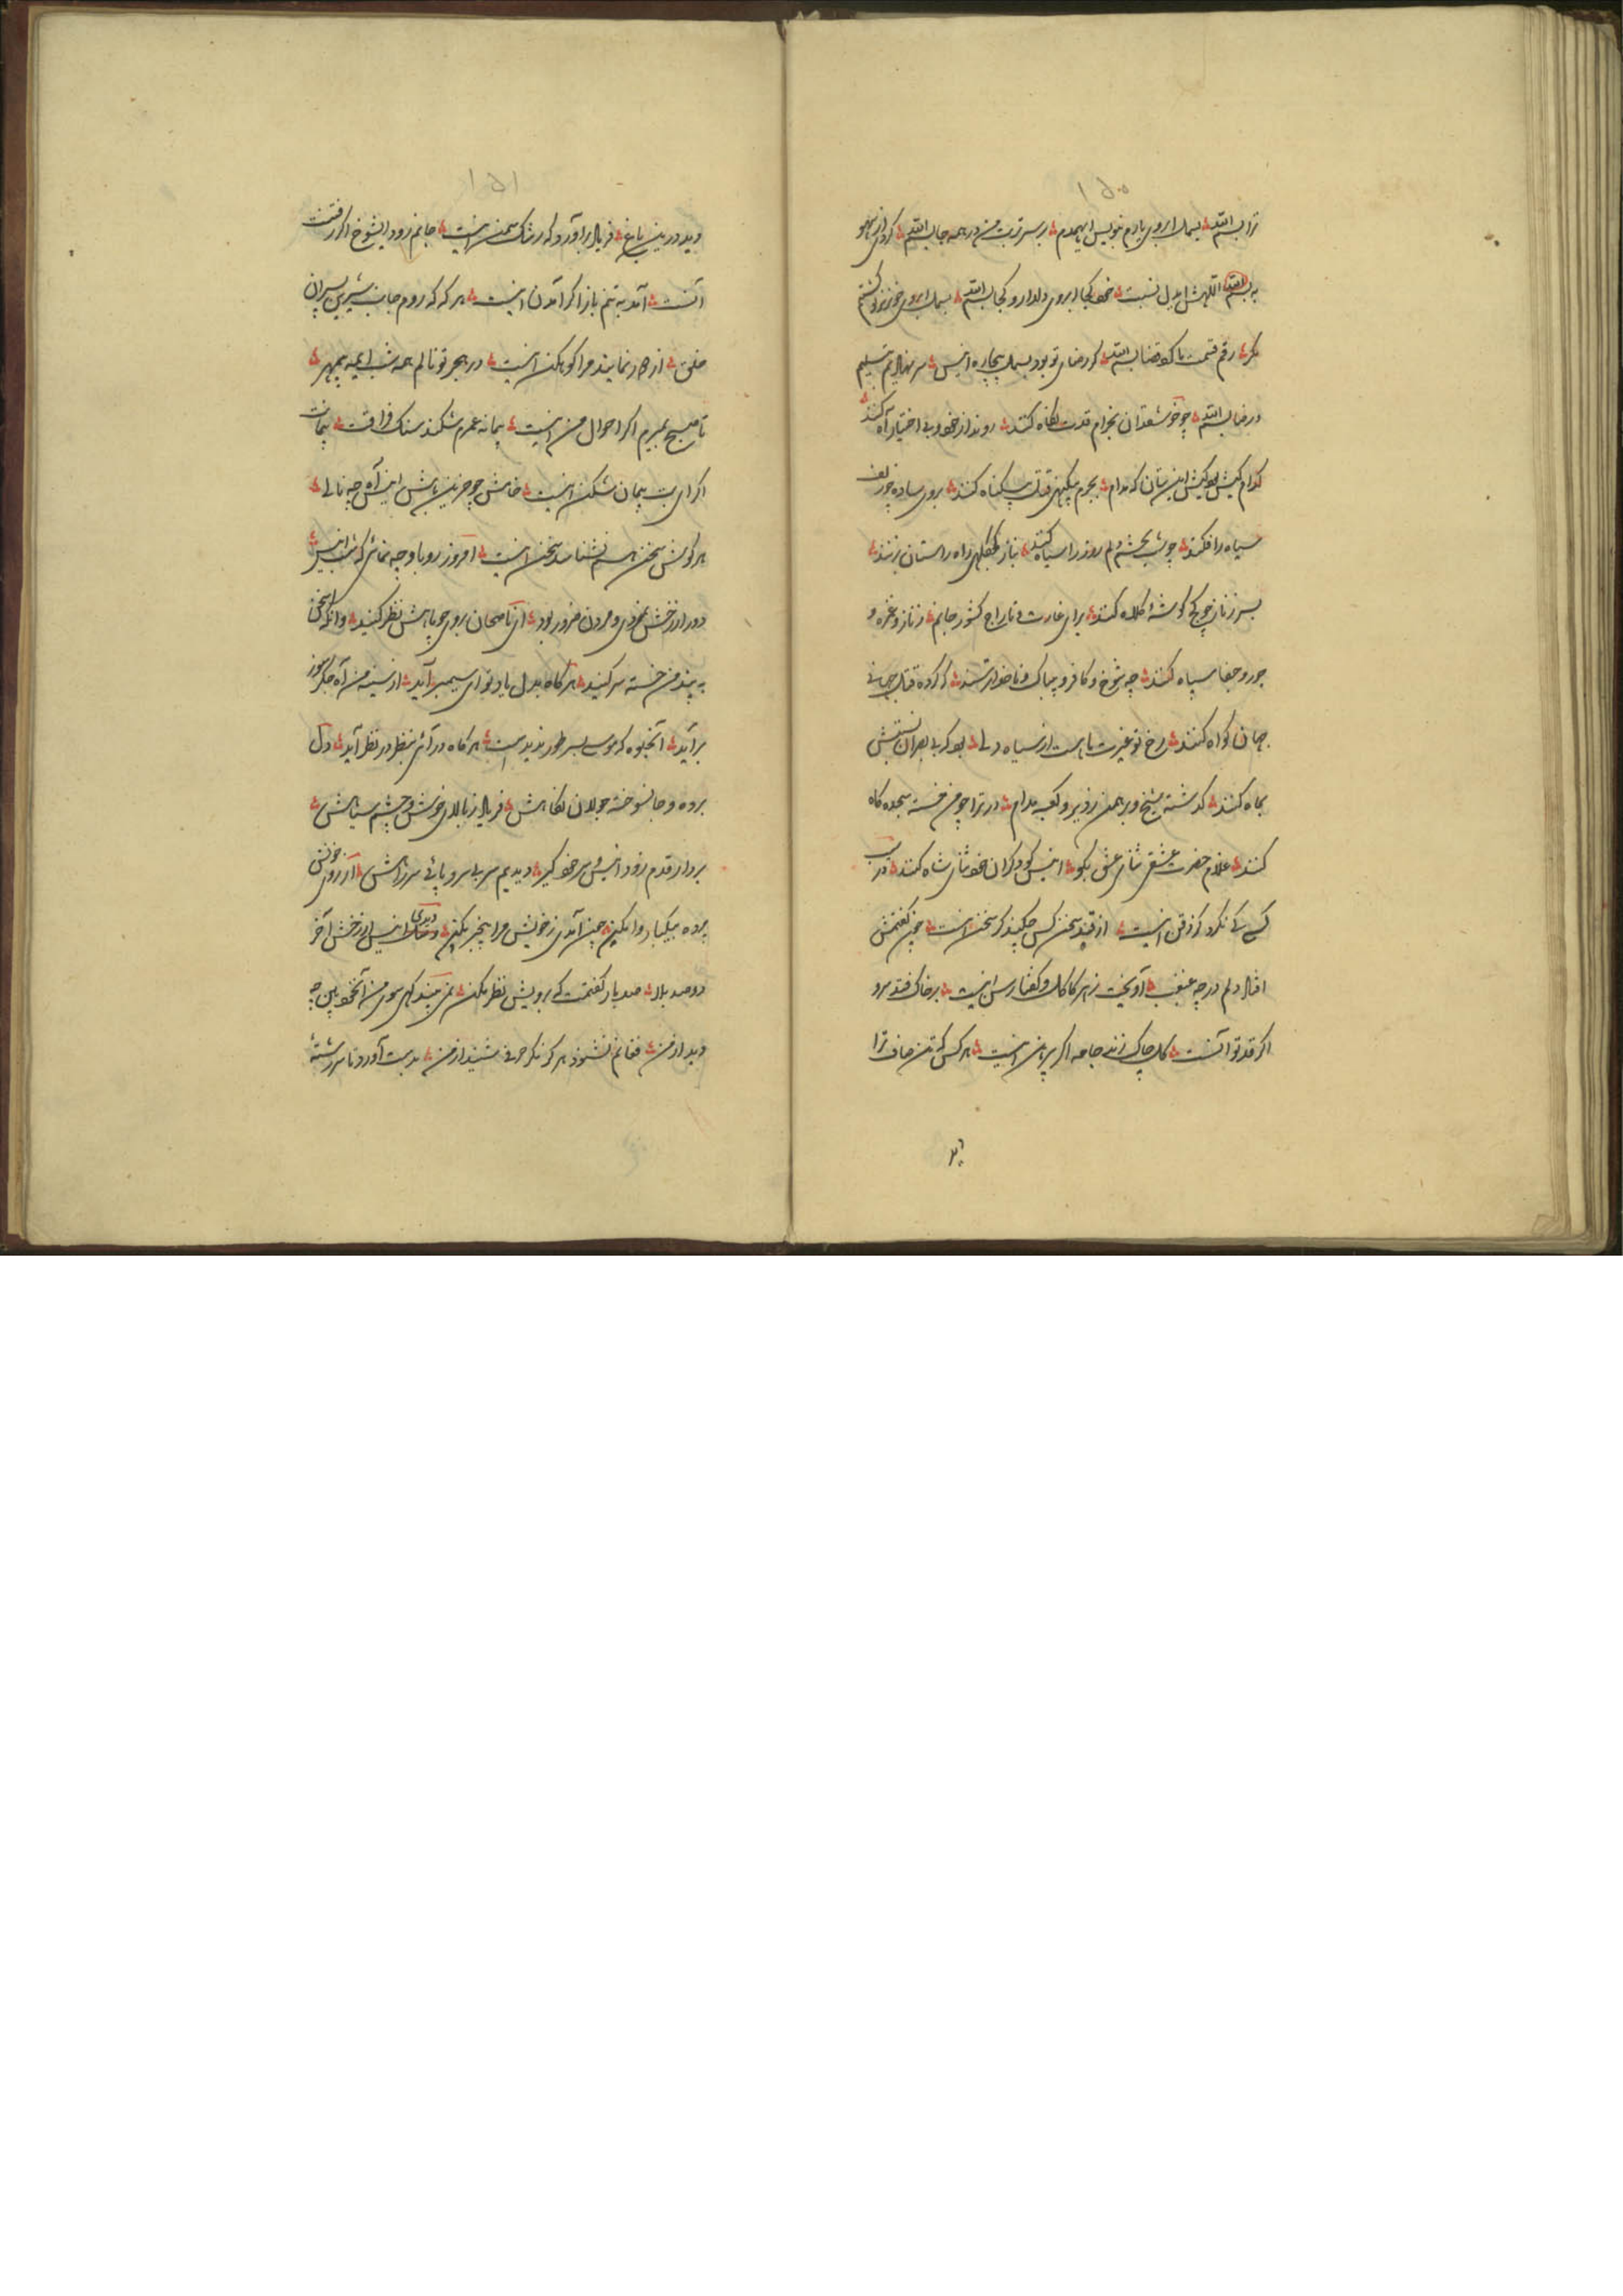 ۱۵۰
ترا بسم الله بسمل ابروی یارم بنویس ای همدم بر سر تربت من در همه جا بسم الله کردی از سهو
به بسم الله نسبت کجا ابروی دلدار و کجا بسم الله بسمل ابروی
مگر رقم قسمت ما کرد قضا بسم الله گر رضای تو بود بسمل بیچاره انیس سر نهادیم تسلیم
در رضا بسم الله چو خوش قدان بخرام قدت نگاه کنند روند از خود و بی اختیار آه کنند
کدام کیش بود کیش این بتان که مدام بجرم بیگنهی قتل بیگناه کنند بروی ساده چو زلف
سیاه را فکند چو شب بچشم دلم روز را سیاه کنند بناز کجکلهی راه راستان بزنند
بسر ز ناز چو کج گوشه کلاه کنند برای غارت و تاراج کشور جانم ز ناز و غمزه و
جور و جفا سپاه کنند چه شوخ و کافر و بیباک و ناخدا ترسند که کرده قتل جهانی
جهان گواه کنند رخ تو غیرت ماه است از سیاه دلی بود که بی بصران نسبتش
بماه کنند گذشته شیخ و برهمن ز دیر و کعبه مدام در ترا چو من خسته سجده گاه
کنند غلام حضرت عشق انیس که دیگران خود ثنای شاه کنند
کسی نکرد گر ذقن اینست از قند سخن کس نکند گر سخن اینست
افتاد دلم در چه غبغب آویخت ز هر کاکل و گفتا رسن اینست بر خاک فتد سرو
اگر قد تو آنست گل چاک زند جامه اگر پیرهن اینست هر کس که تن صاف ترا
۱۵۱
دید درین باغ فریاد برآورد که رشک سمن اینست جانم رود ایشوخ اگر رفتنت
آنست آمد به تنم باز اگر آمدن اینست هر که که روم جانب شیرین پسران
خلق از دور نمایند مرا کوهکن اینست در هجر تو نالم همه شب ای مه بیمهر
تا صبح بمیرم اگر احوال من اینست پیمانه عمرم شکند سنگ فراقت پیمانت
اگر ای بت پیمان شکن اینست خامش چو حزین باش انیس آه چه نالی
هر گوش سخن هم نشناسد سخن اینست امروز رو با و چه نمائی که شب انیس
دور از رخش نمردی و مردن ضرور بود ای ناصحان بروی چو ماهش نظر کنید وانگه سخن
به پند من خسته سر کنید هر گاه بدل یاد تو ای سیمبر آید از سینه من آه جگر سوز
برآید آنجلوه که موسی بسر طور ندیدست هر گاه در آئی بنظر در نظر آید دل
برده و جانسوخته جولان نگاهش فریاد ز بالای خوش و چشم سیاهش
بردار قدم زود انیس و سر خود گیر دیدیم سر بی سر و پائی سر راهش از روی خویش
پرده بیکبار وا مکن چون آمدی ز خویش مرا بیخبر مکن دیدی انیس از رخش آخر
دو صد بلا صد بار گفتمت که برویش نظر مکن نمی بیند گهی سوی من آنخود بین چه
دید از من فغانم نشنود هرگز مگر حرفی شنید از من بدست آورد تا سر رشتهٔ